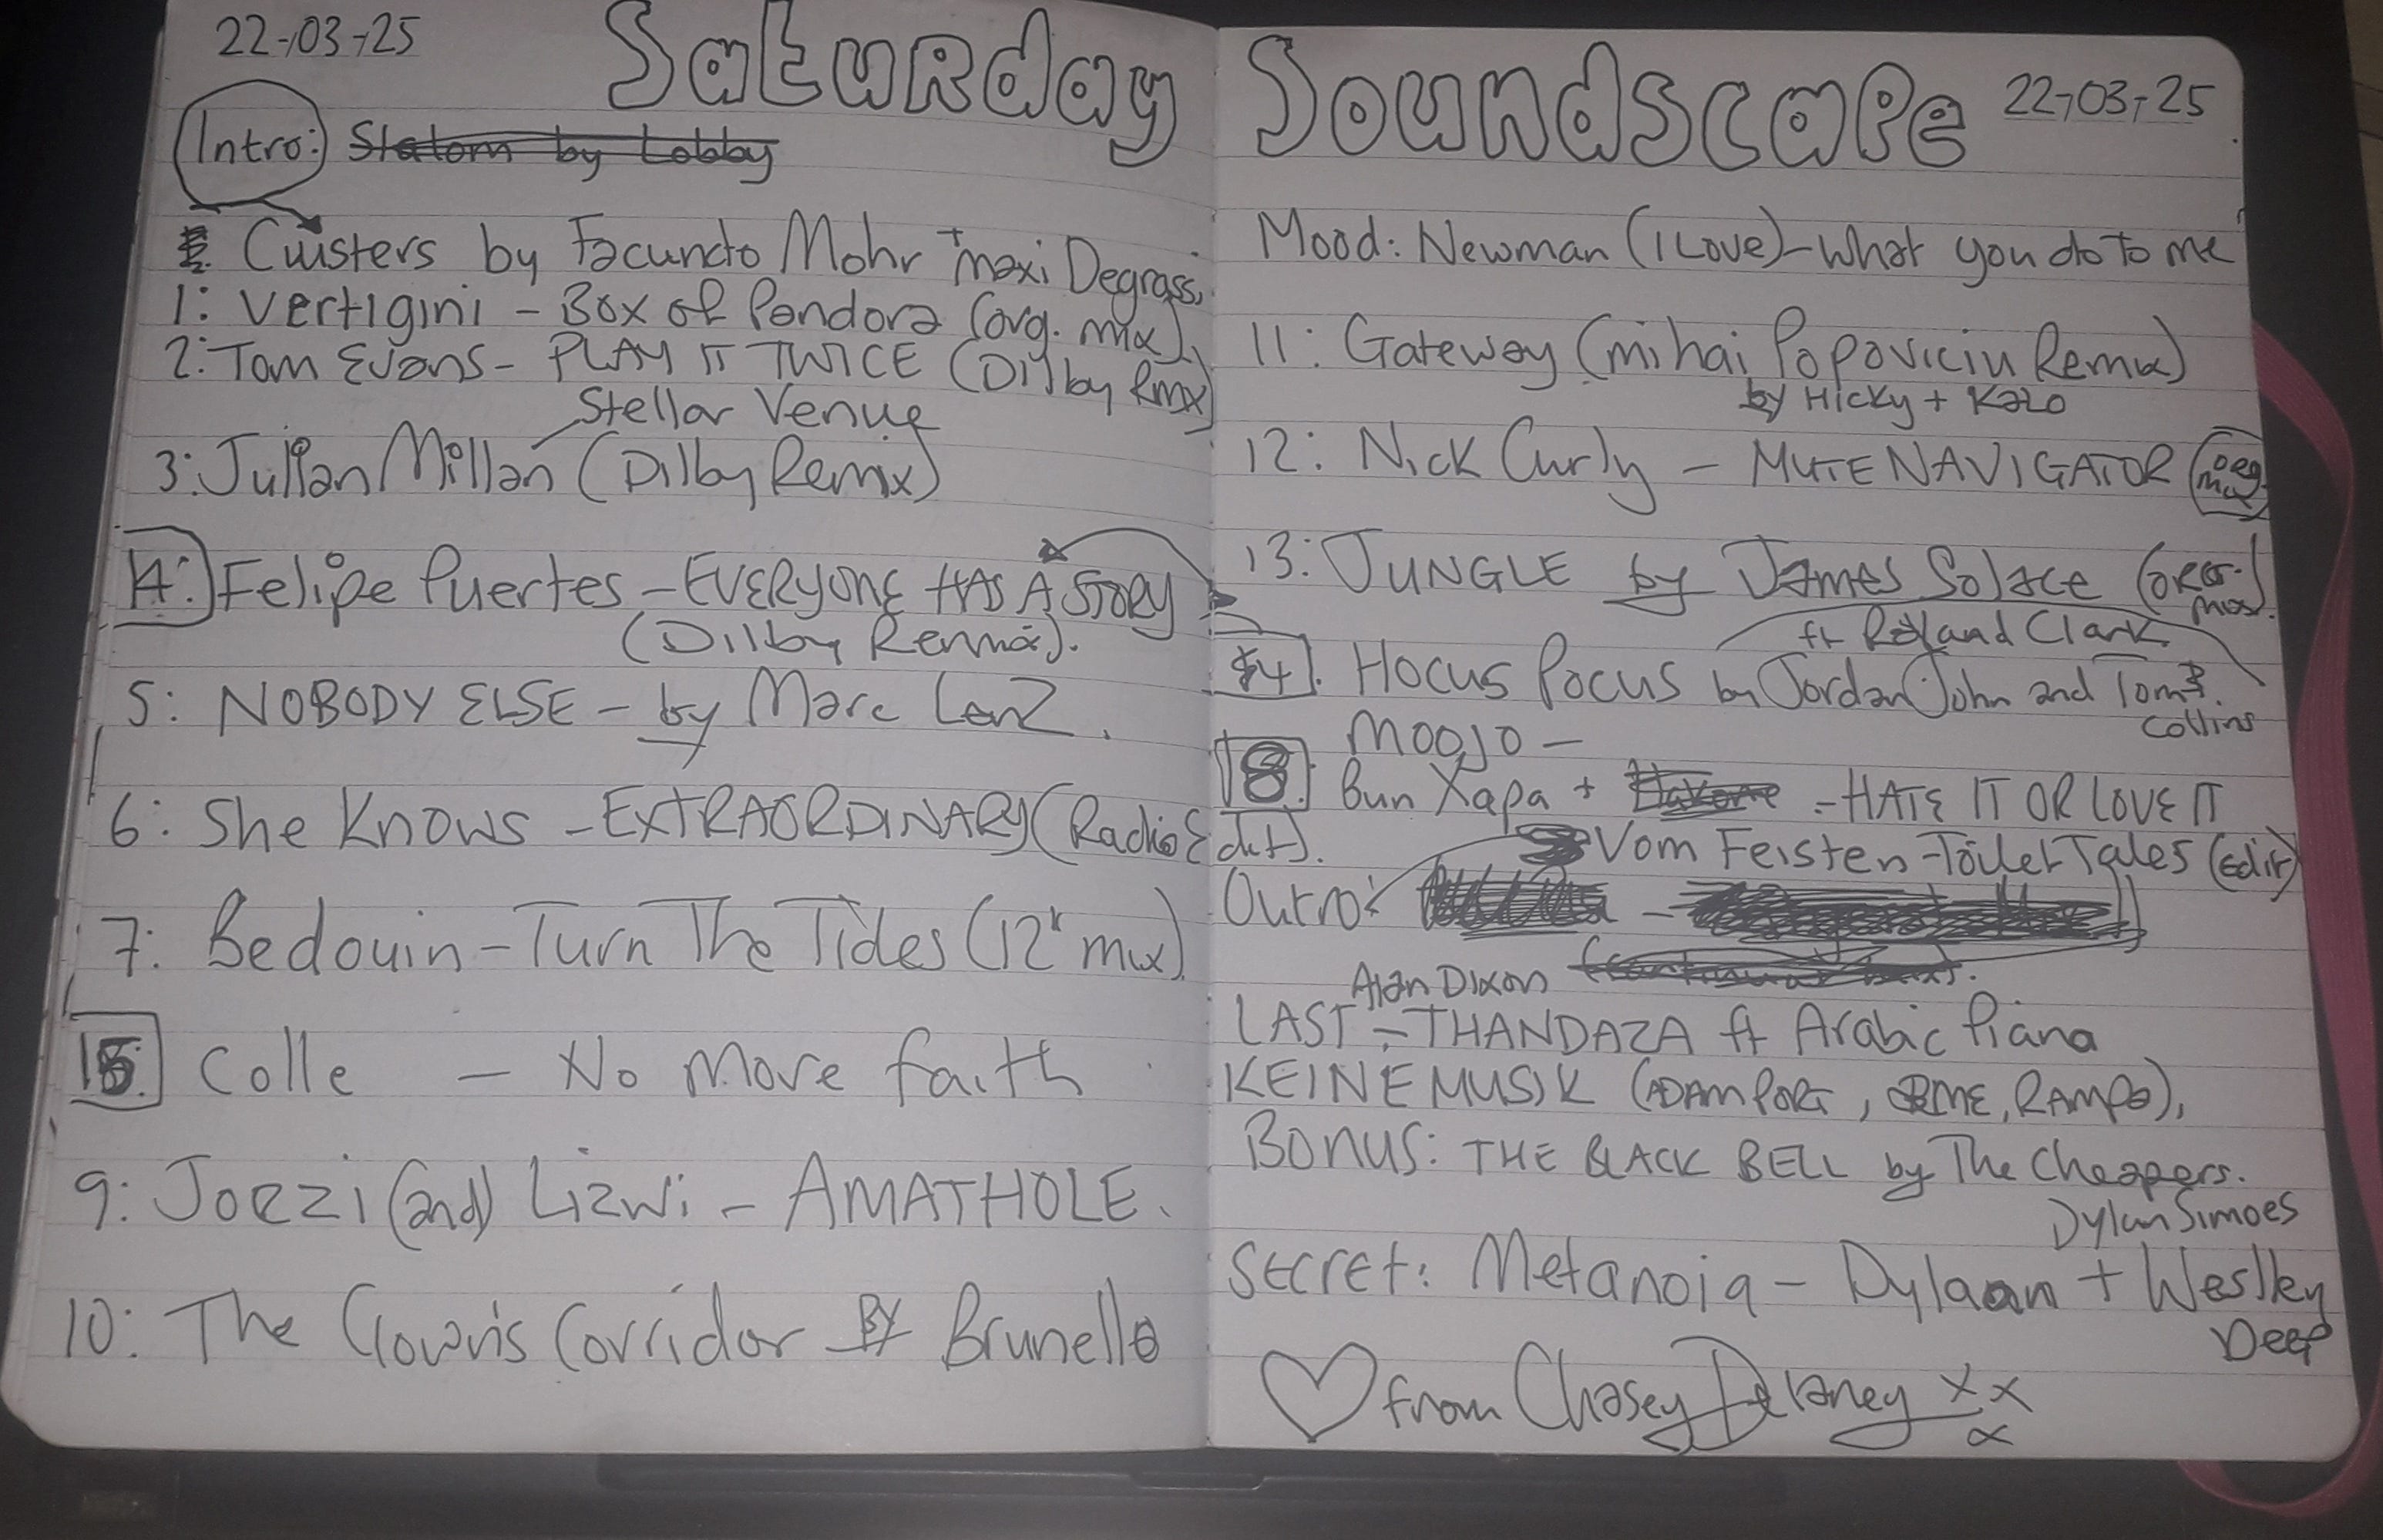 22-03-25 Saturday
Intro: Statom by Lobby
Clusters by Facundo Mohr + Maxi Degrassi
1: Vertigini - Box of Pandora (org. mix).
2: Tom Evans - PLAY IT TWICE (Dilby Rmx)
Stellar Venue
3: Julian Millan (Dilby Remix)
14: Felipe Puertes - EVERYONE HAS A STORY
(Dilby Remix).
5: NOBODY ELSE - by Marc Lenz.
6: She Knows - EXTRAORDINARY (Radio Edit).
7: Bedouin - Turn The Tides (12" mix).
15: Colle - No More faith
9: Jorzi (and) Lizwi - AMATHOLE.
10: The Clown's Corridor BY Brunello
Soundscape 22-03-25
Mood: Newman (I Love) - What you do to me
11: Gateway (Mihai Popoviciu Remix)
by Hicky + Kalo
12: Nick Curly - MUTE NAVIGATOR (org mix)
13: JUNGLE by James Solace (ORG. mix).
ft Roland Clark
14. Hocus Pocus by Jordan John and Tom
Collins
MOOJO -
18. Bun Xapa + - HATE IT OR LOVE IT
Vom Feisten - Toilet Tales (Edit)
Outro:
Alan Dixon
LAST - THANDAZA ft Arabic Piano
KEINEMUSIK (ADAM PORT, &ME, RAMPA),
BONUS: THE BLACK BELL by The Cheapers.
Dylan Simoes
Secret: Metanoia - Dylaan + Weslley
Deep
from Chasey Delaney xx
x